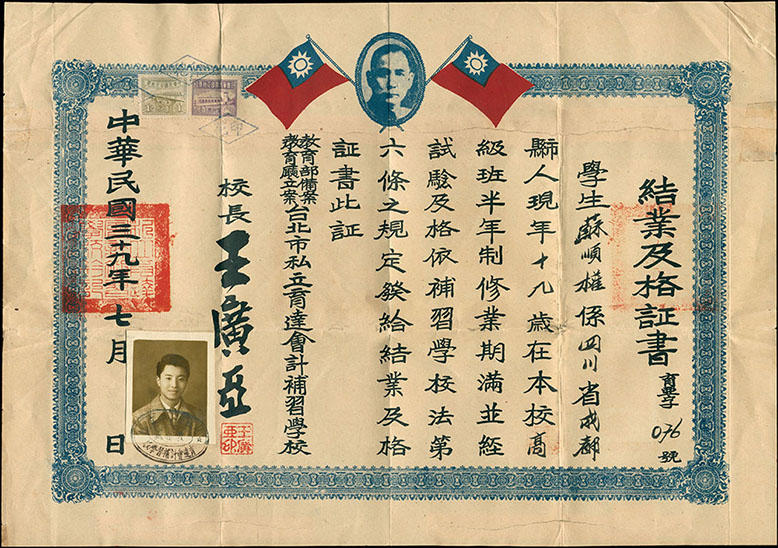 結業及格証書
育學字076號
學生蘇順權係四川省成都
縣人現年十九歲在本校高
級班半年制修業期滿並經
試驗及格依補習學校法第
六條之規定發給結業及格
証書此証
教育部備案
教育廳立案
台北市私立育達會計補習學校
校長王廣亞
中華民國三十九年七月 日